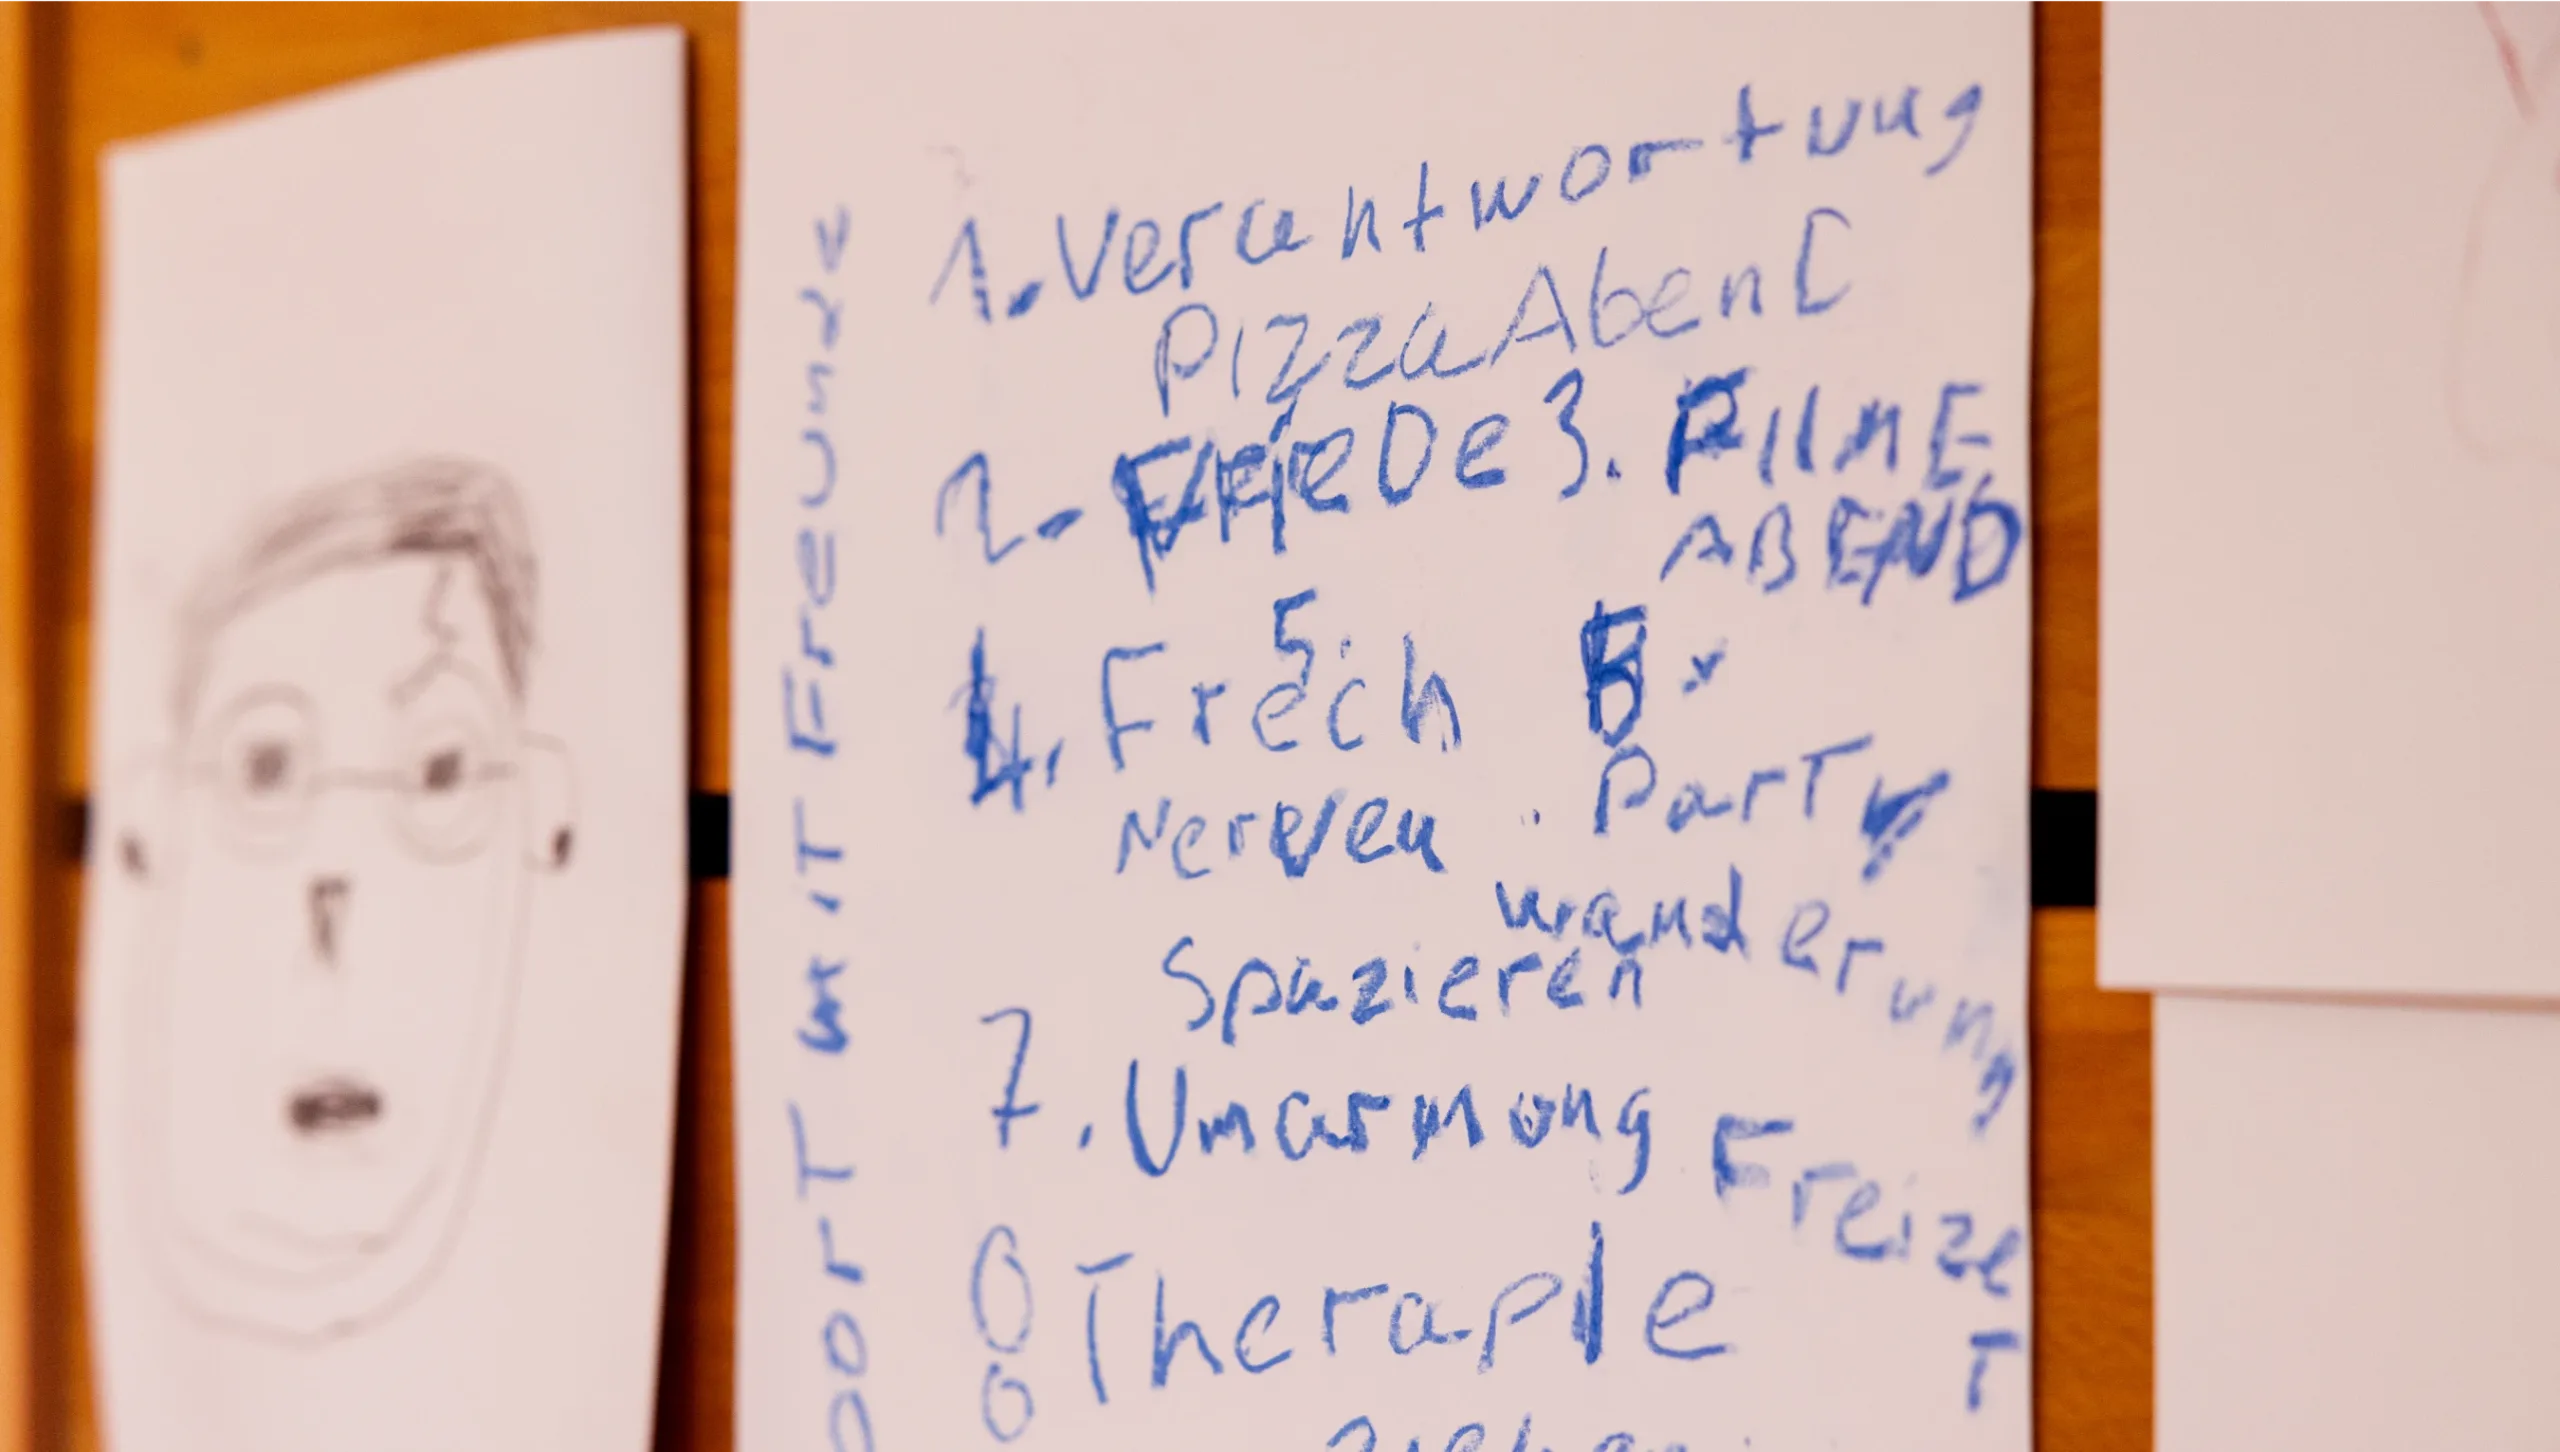 1. Verantwortung
PizzaAbend
2. FrieDe 3. FILME
ABEND
4. Frech 5.
Nerven Party
wanderung
Spazieren
7. Umarmung Freizeit
8 Therapie
ort mit Freunde